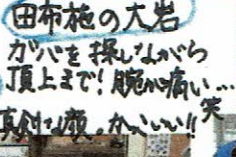 田布施の大岩
ガバを探しながら
頂上まで！腕が痛い…
笑
真剣な顔。かっこいい!!